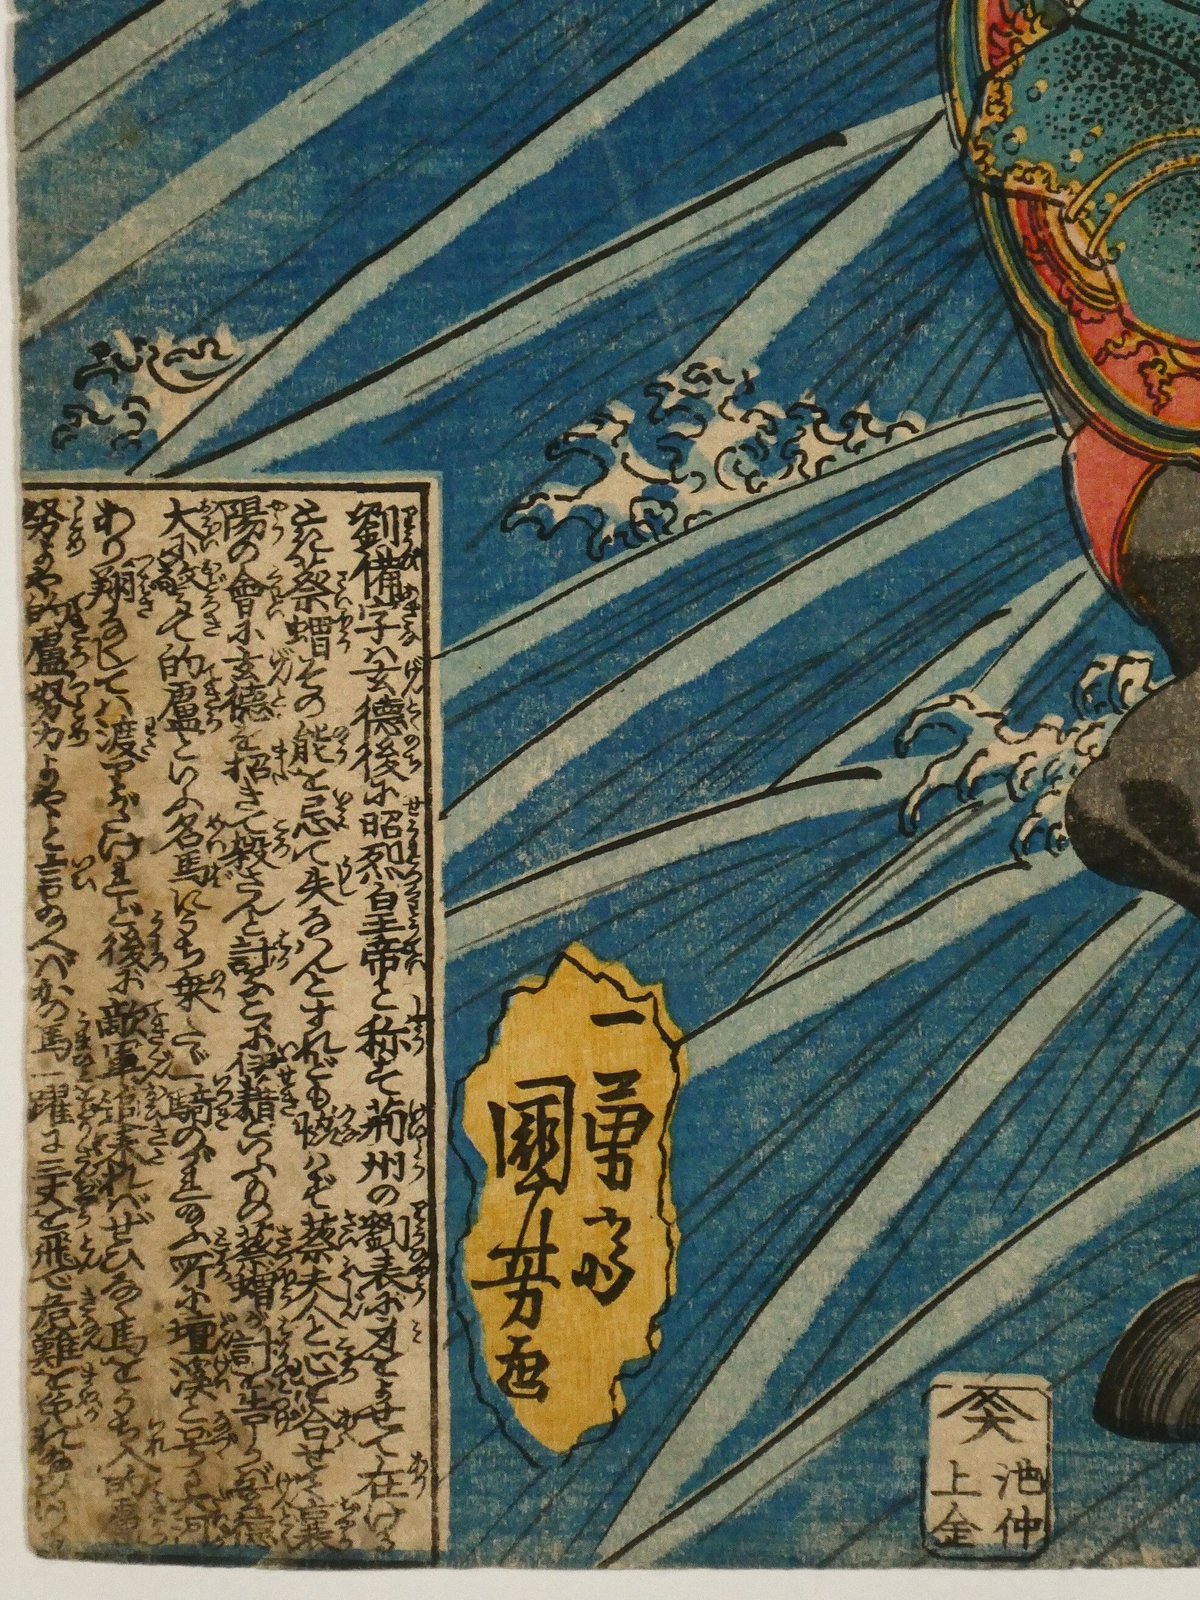 劉備字ハ玄徳後に昭烈皇帝と称せ荊州の劉表に身をよせて在ける
蔡瑁その能を忌て失なはんとすれども恢はず蔡夫人と心を合せて襄
陽の會に玄徳を招きて殺さんと討るに伊籍といふもの蔡瑁が討を告しか玄徳
大に驚きて的盧といふ名馬にうち乗たゞ一騎のがれ玉ふ所に壇渓と号る大河
あり翔なくしてハ渡りがたけれど後に敵軍追来れバぜひなく馬をうち入的盧
努よや的盧努力よやと言のへバかの馬一躍に三丈を飛で危難を
一勇齋
國芳画
池仲
上金